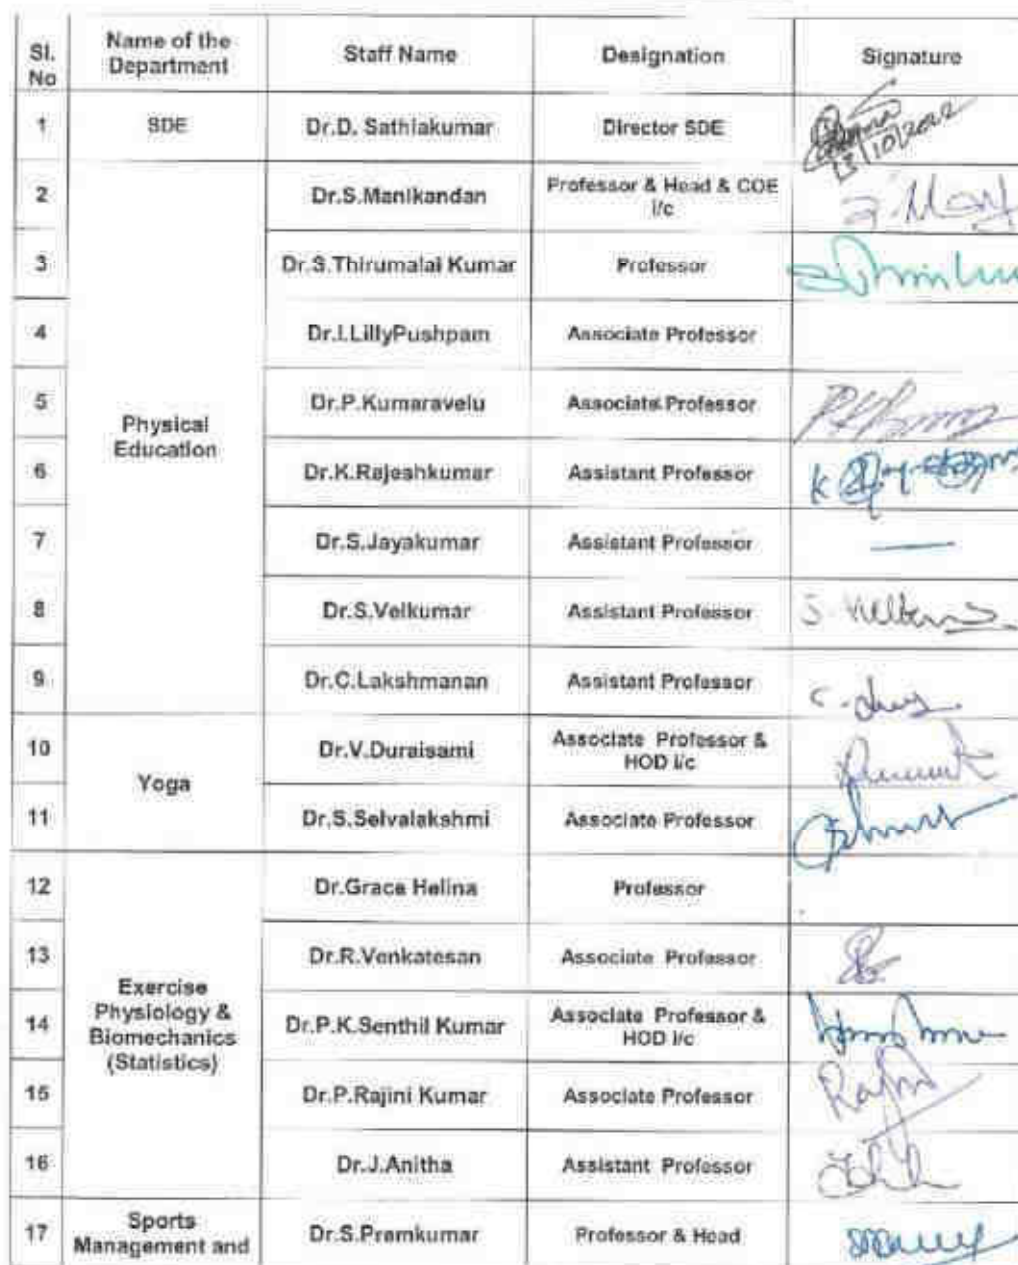 Sl. No Name of the Department Staff Name Designation Signature
1 SDE Dr.D. Sathiakumar Director SDE 13/10/2022
2 Physical Education Dr.S.Manikandan Professor & Head & COE i/c
3 Dr.S.Thirumalai Kumar Professor
4 Dr.I.LillyPushpam Associate Professor
5 Dr.P.Kumaravelu Associate Professor
6 Dr.K.Rajeshkumar Assistant Professor
7 Dr.S.Jayakumar Assistant Professor
8 Dr.S.Velkumar Assistant Professor
9 Dr.C.Lakshmanan Assistant Professor
10 Yoga Dr.V.Duraisami Associate Professor & HOD i/c
11 Dr.S.Selvalakshmi Associate Professor
12 Exercise Physiology & Biomechanics (Statistics) Dr.Grace Helina Professor
13 Dr.R.Venkatesan Associate Professor
14 Dr.P.K.Senthil Kumar Associate Professor & HOD i/c
15 Dr.P.Rajini Kumar Associate Professor
16 Dr.J.Anitha Assistant Professor
17 Sports Management and Dr.S.Premkumar Professor & Head